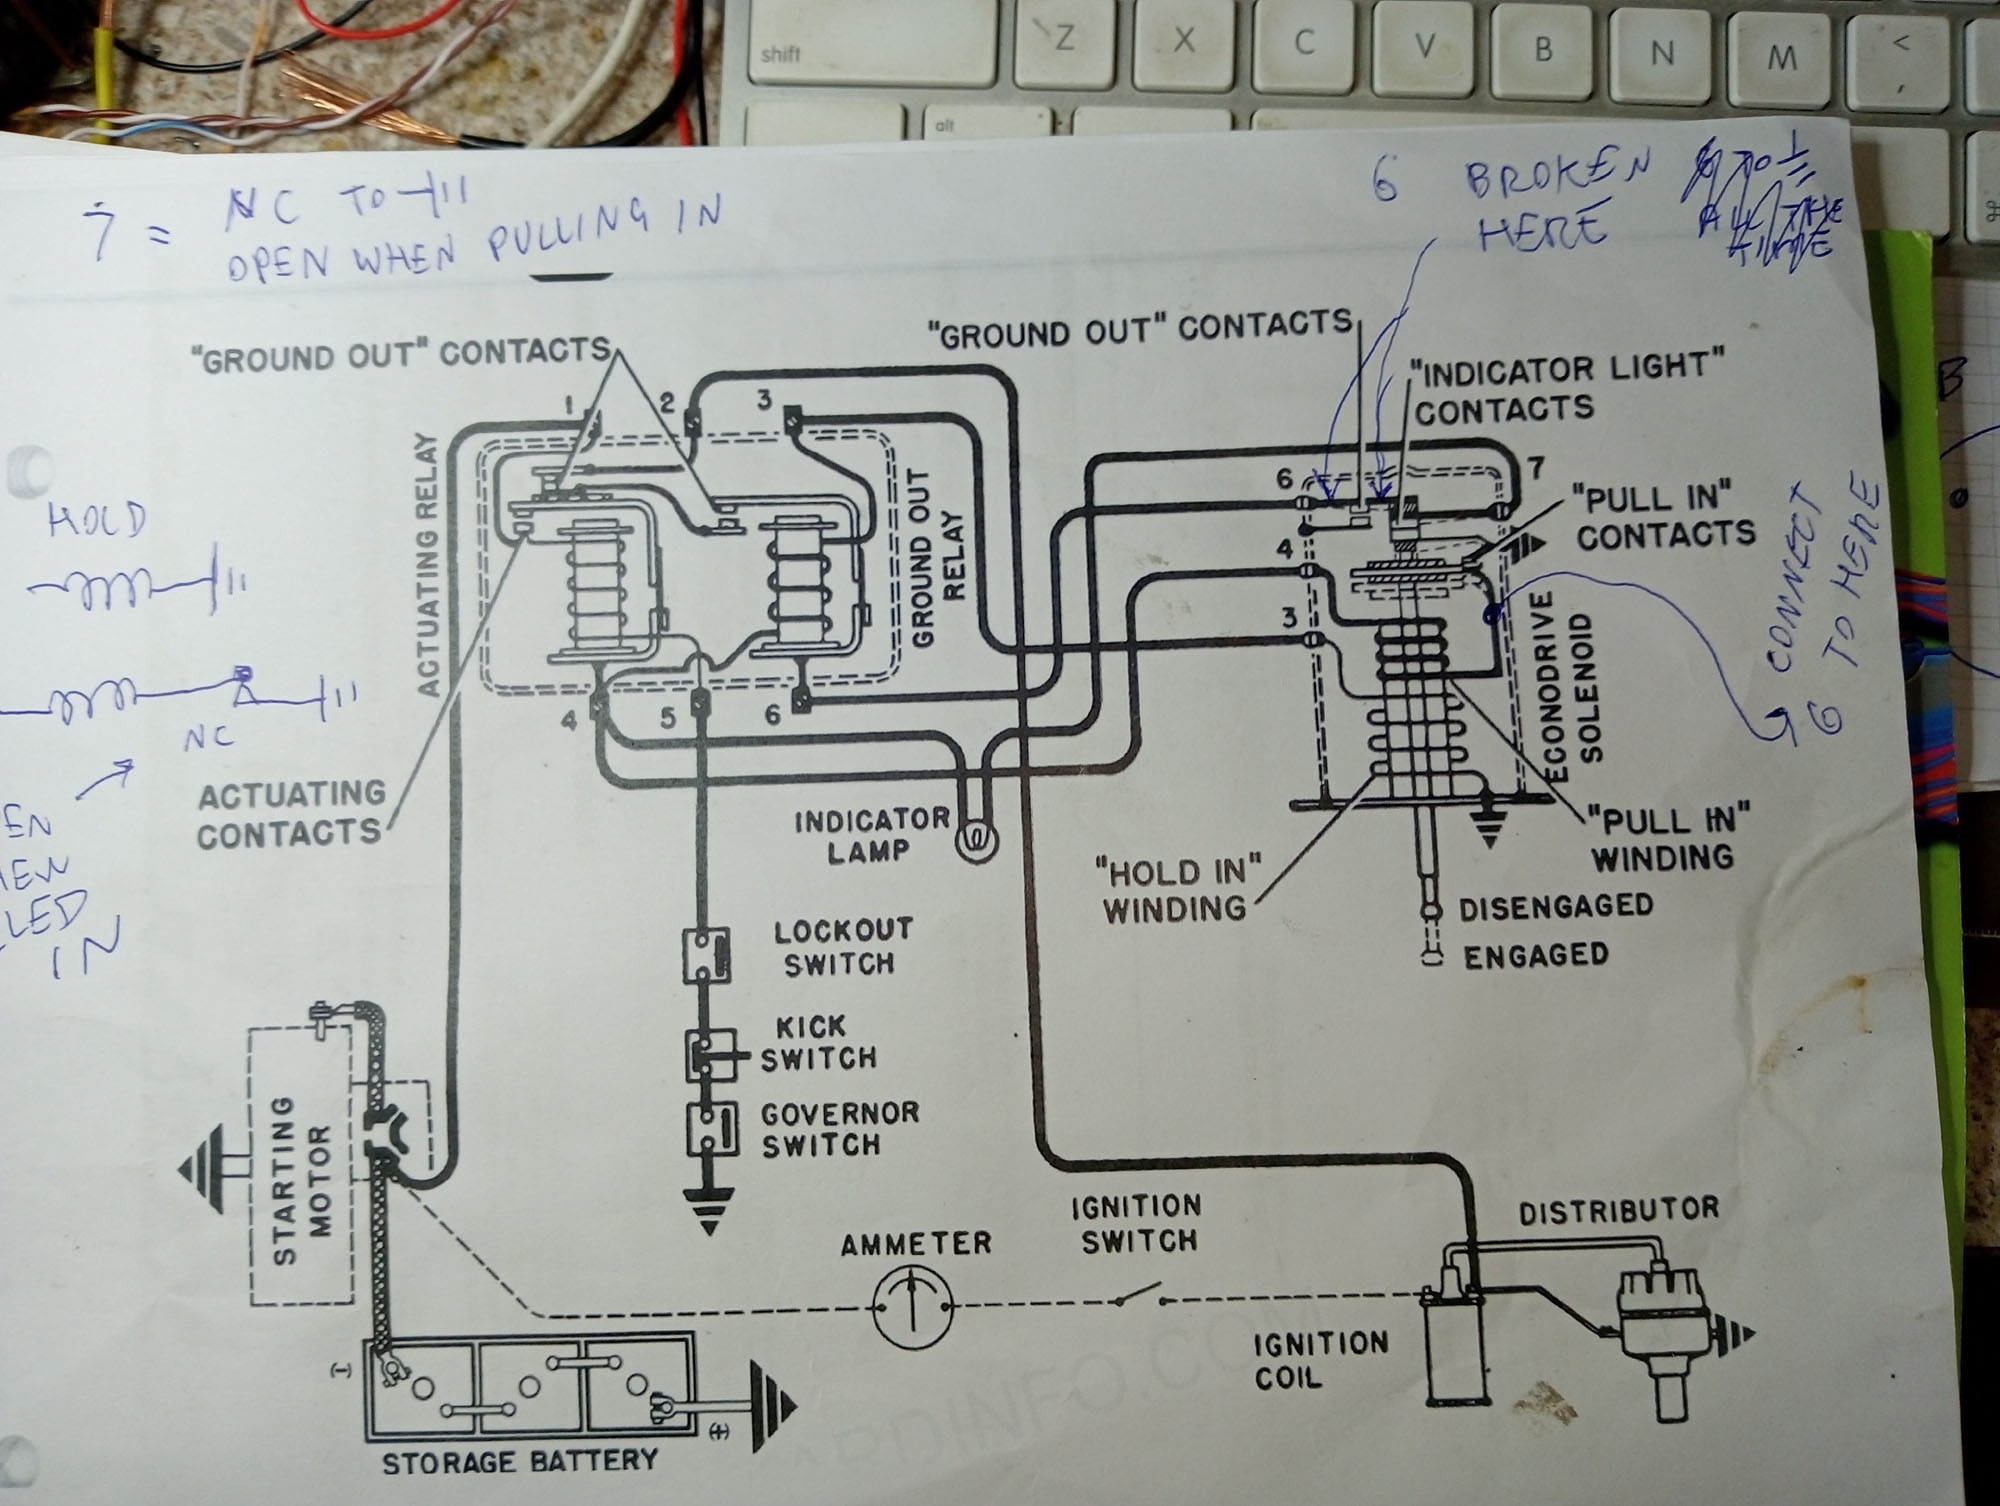 shift
Z
X
C
V
B
N
M
<
,
alt
⌘
7 = NC TO
OPEN WHEN PULLING IN
6 BROKEN
HERE
"GROUND OUT" CONTACTS
"GROUND OUT" CONTACTS
"INDICATOR LIGHT"
CONTACTS
1
2
3
ACTUATING RELAY
GROUND OUT
RELAY
6
7
4
3
"PULL IN"
CONTACTS
B
CONNECT
6 TO HERE
HOLD
NC
EN
LED
IN
4
5
6
ECONODRIVE
SOLENOID
ACTUATING
CONTACTS
INDICATOR
LAMP
"HOLD IN"
WINDING
"PULL IN"
WINDING
DISENGAGED
ENGAGED
LOCKOUT
SWITCH
KICK
SWITCH
GOVERNOR
SWITCH
STARTING
MOTOR
AMMETER
IGNITION
SWITCH
DISTRIBUTOR
IGNITION
COIL
(-)
(+)
STORAGE BATTERY